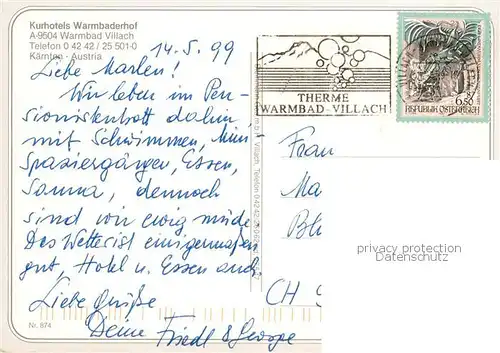 Kurhotels Warmbaderhof
A-9504 Warmbad Villach
Telefon 0 42 42 / 25 501-0
Kärnten - Austria
14.5.99
Liebe Marlen!
Wir leben im Pen-
sionistenbett dahin
mit Schwimmen, Mini
Spaziergänge, Essen,
Sauna, dennoch
sind wir ewig müde.
Das Wetter ist einigermaßen
gut, Hotel u. Essen auch.
Liebe Grüße
Deine Friedl & George
Nr. 874
THERME
WARMBAD-VILLACH
650
REPUBLIK ÖSTERREICH
Villach, Telefon 0 42 42
Frau
Ma
CH
privacy protection
Datenschutz